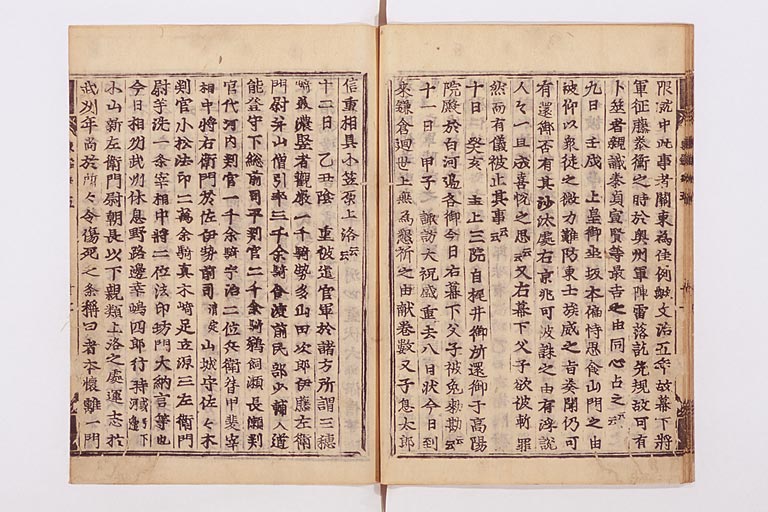 限就中此事者關東為佳例歟文治五年故幕下將
軍征藤泰衡之時於奥州軍陣雷落訖先規故可有
卜筮者親職泰貞宣賢等最吉之由同心占之云云
九日 壬戌 上皇御坐坂本偏恃思食山門之由
被仰以衆徒之微力難防東士族威之旨奏聞仍可
有還御否有其沙汰處右京兆可被誅之由有浮説
人々一旦成喜悦之思云云又右幕下父子欲被斬罪
然而有儀被止其事云云
十日 癸亥 主上三院自梶井御所還御于高陽
院殿於白河邊各御今日右幕下父子被免勅勘云云
十一日 甲子 諏訪大祝盛重去八日状今日到
來鎌倉廻世上無為懇祈之由献巻數又子息太郎
信重相具小笠原上洛云云
十二日 乙丑陰 重被遣官軍於諸方所謂三穗
崎美濃竪者觀嚴一千騎勢多山田次郎伊藤左衛
門尉并山僧引率三千余騎食渡前民部少輔入道
能登守下総前司平判官二千余騎鵜飼瀬長瀬判
官代河内判官一千余騎宇治二位兵衛督甲斐宰
相中將右衛門佐伊勢前司清定 山城守佐々木
判官小松法印二萬余騎真木嶋足立源三左衛門
尉芋洗一条宰相中將二位法印坊門大納言等也
今日相州武州休息野路邊幸嶋四郎行時
小山新左衛門尉朝長以下親類上洛之處運志於
武州年尚於所々令傷死之条稱曰者本懷離一門